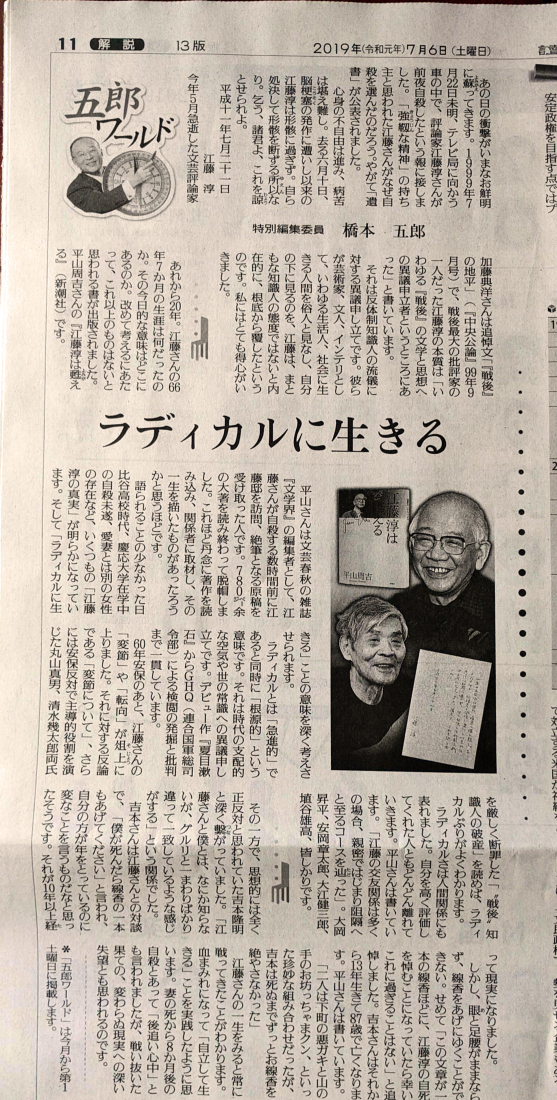 11 解説 13版 2019年(令和元年)7月6日(土曜日)
五郎
ワールド
特別編集委員 橋本 五郎
ラディカルに生きる
あの日の衝撃がいまなお鮮明
に蘇ってきます。1999年7
月22日未明、テレビ局に向かう
車の中で、評論家江藤淳さんが
前夜自殺したという報に接しま
した。「強靱な精神」の持ち
主と思われた江藤さんがなぜ自
殺を選んだのだろう。やがて「遺
書」が公表されました。
心身の不自由は進み、病苦
は堪え難し。去る六月十日、
脳梗塞の発作に遭いし以来の
江藤淳は形骸に過ぎず。自ら
処決して形骸を断ずる所以な
り。乞う、諸君よ、これを諒
とせられよ。
平成十一年七月二十一日
江藤 淳
今年5月急逝した文芸評論家
加藤典洋さんは追悼文「『戦後』
の地平」(『中央公論』99年9
月号)で、戦後最大の批評家の
一人だった江藤淳の本質は「い
わゆる『戦後』の文学と思想へ
の異議申立者というところにあ
った」と書いています。
それは反体制知識人の流儀に
対する異議申し立てです。彼ら
が芸術家、文人、インテリとし
て、いわゆる生活人、社会に生
きる人間を俗人と見なし、自分
の下に見るのを、江藤は、まと
もな知識人の態度ではないと内
在的に、根底から覆したという
のです。私にはとても得心がい
きました。
あれから20年。江藤さんの66
年7か月の生涯は何だったの
か。その今日的な意味はどこに
あるのか。改めて考えるにあた
って、これ以上のものはないと
思われる書が出版されました。
平山周吉の『江藤淳は甦え
る』(新潮社)です。
平山さんは文芸春秋の雑誌
『文学界』の編集者として、江
藤さんが自殺する数時間前に江
藤邸を訪問、絶筆となる原稿を
受け取った人です。780㌻余
の大著を読み終わって脱帽しま
した。これほど丹念に著作を読
み込み、関係者に取材し、その
一生を描いたものがあったろう
かと思うほどです。
語られることの少なかった日
比谷高校時代、慶応大学在学中
の自殺未遂、愛妻とは別の女性
の存在など、いくつもの「江藤
淳の真実」が明らかになってい
ます。そして「ラディカルに生
きる」ことの意味を深く考えさ
せられます。
ラディカルとは「急進的」で
あると同時に「根源的」という
意味です。それは時代の支配的
な空気や世の常識への異議申し
立てです。デビュー作『夏目漱
石』からGHQ(連合国軍総司
令部)による検閲の発掘と批判
まで一貫しています。
60年安保のあと、江藤さんの
「変節」や「転向」が俎上に
上りました。それに対する反論
である「変節について」、さら
には安保反対で主導的役割を演
じた丸山真男、清水幾太郎両氏
を厳しく断罪した「〝戦後〟知
識人の破産」を読めば、ラディ
カルぶりがよくわかります。
ラディカルさは人間関係にも
表れました。自分を高く評価し
てくれた人ともどんどん離れて
いきます。平山さんは書いてい
ます。「江藤の交友関係は多く
の場合、親密ではじまり阻隔へ
と至るコースを辿った」。大岡
昇平、安岡章太郎、大江健三郎、
埴谷雄高、皆しかりです。
その一方で、思想的には全く
正反対と思われていた吉本隆明
と深く繋がっていました。「江
藤さんと僕とは、なにか知らな
いが、グルリと一まわりばかり
違って一致しているような感じ
がする」という関係でした。
吉本さんは江藤さんとの対談
で、「僕が死んだら線香の一本
もあげてください」と言われ、
自分の方が年をとっているのに
変なことを言うものだなと思っ
たそうです。それが10年以上経
って現実になりました。
しかし、眼と足腰がままなら
ず、線香をあげにゆくことがで
きない。せめて「この文章が一
本の線香ほどに、江藤淳の自死
を悼むことになっていたら幸い
これに過ぎることはない」と追
悼しました。吉本さんはそれか
ら13年生きて87歳で亡くなりま
す。平山さんは書いています。
「二人は下町の悪ガキと山の
手のお坊っちゃまクン、といっ
た珍妙な組み合わせだったが、
吉本は死ぬまでずっとお線香を
絶やさなかった」
江藤さんの一生をみると常に
戦ってきたことがわかります。
血まみれになって「自立して生
きる」ことを実践したように思
います。妻の死から8か月後の
自殺とあって「後追い心中」と
も言われましたが、戦い抜いた
果ての、変わらぬ現実への深い
失望とも思われるのです。
＊「五郎ワールド」は今月から第1
土曜日に掲載します。
江藤淳は
える
平山周吉